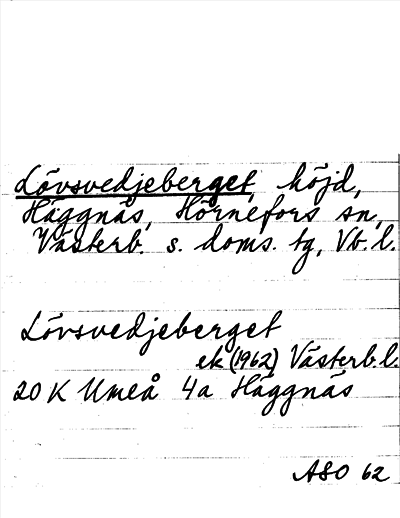 Lövsvedjeberget, höjd,
Häggnäs, Hörnefors sn,
Västerb. s. doms. tg, Vb. l.
Lövsvedjeberget
ek (1962) Västerb. l.
20 K Umeå 4a Häggnäs
ASO 62